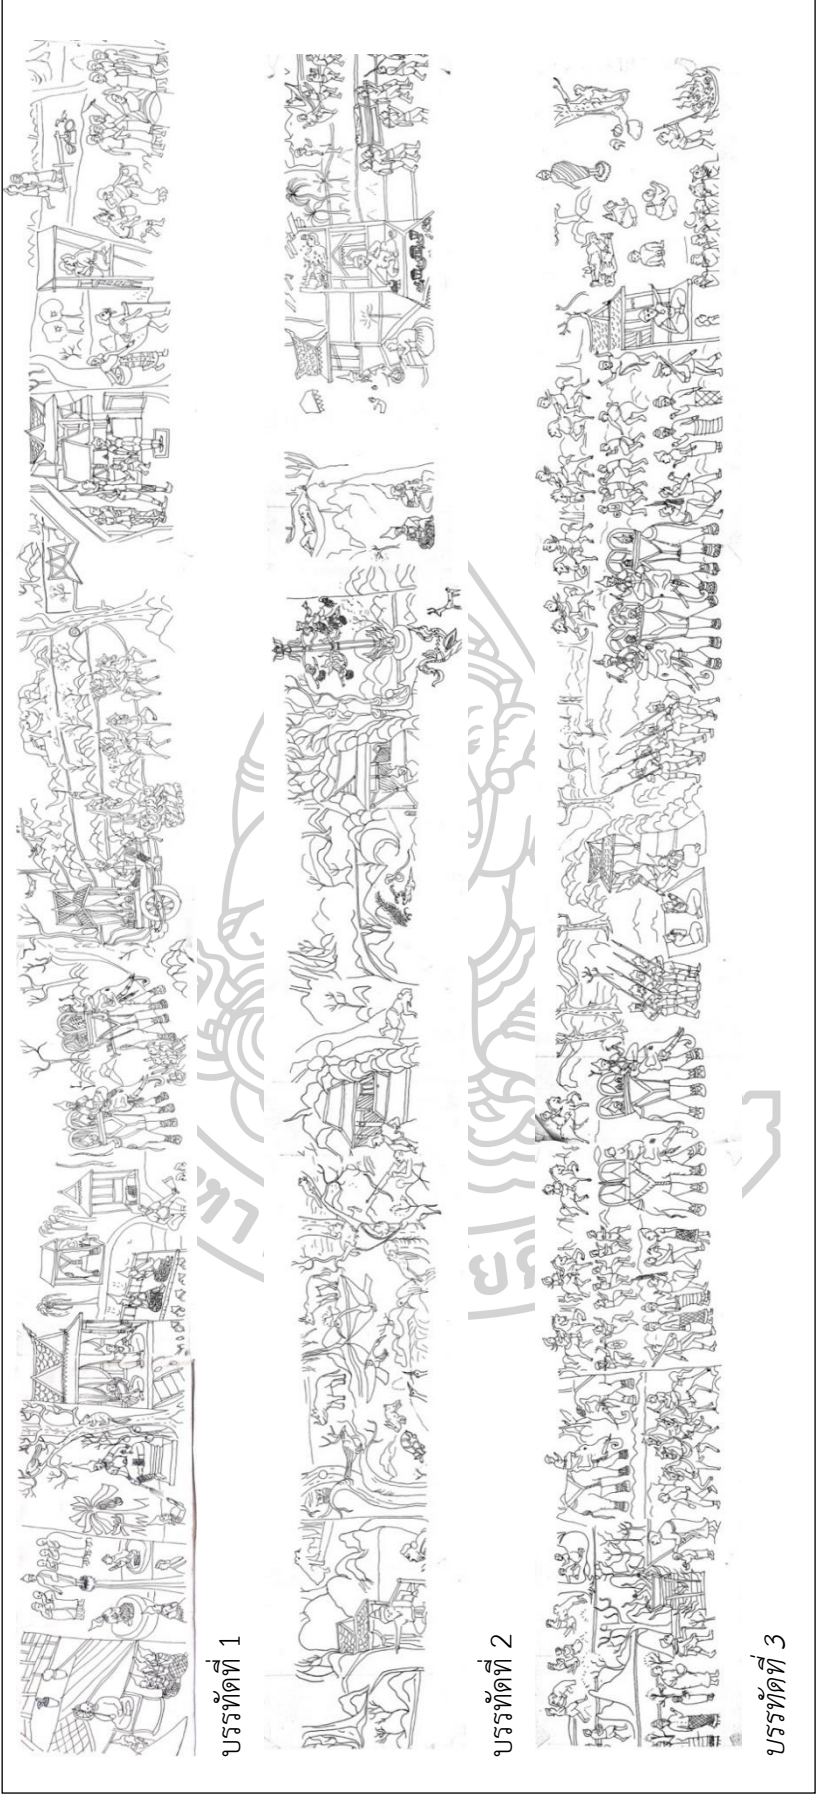 บรรทัดที่ 1
บรรทัดที่ 2
บรรทัดที่ 3